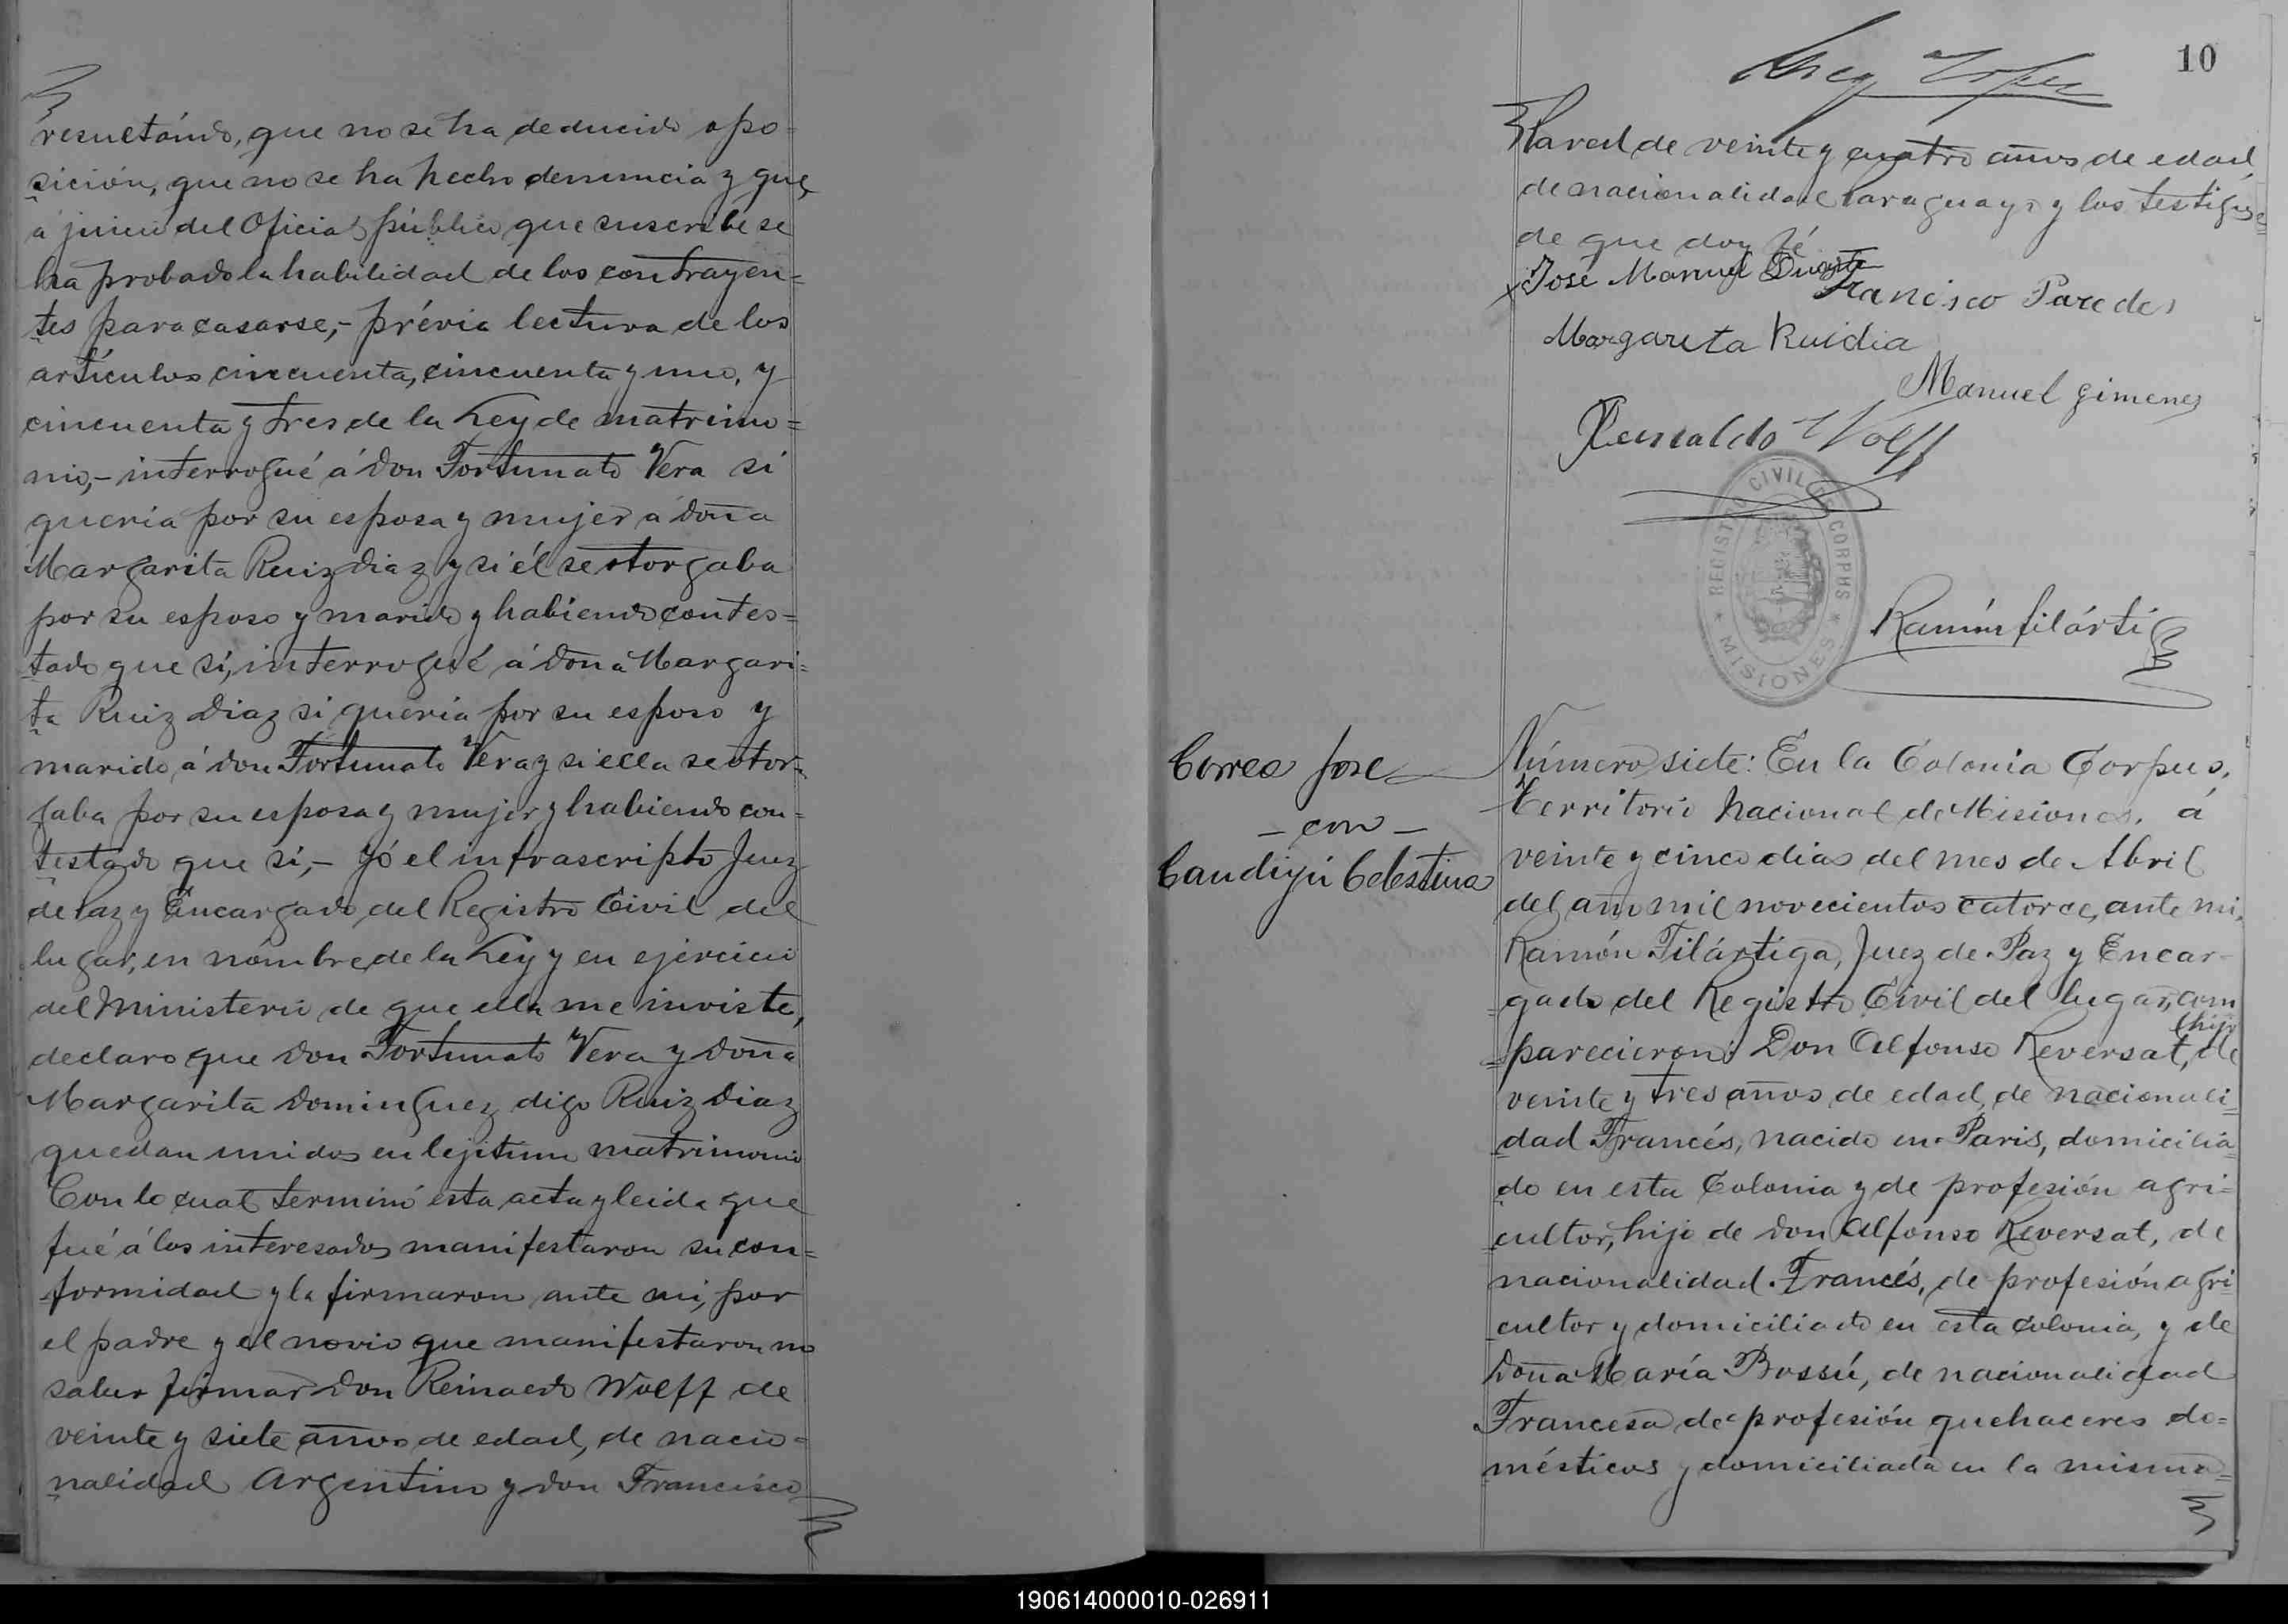 resultándo, que no se ha deducido opo=
sición, que no se ha hecho denuncia y que,
a juicio del Oficial público que suscribe se
ha probado la habilidad de los contrayen=
tes para casarse,- prévia lectura de los
artículos cincuenta, cincuenta y uno, y
cincuenta y tres de la Ley de matrimo=
nio,- interrogué á don Fortunato Vera si
quería por su esposa y mujer á doña
Margarita Ruiz Diaz y si él se otorgaba
por su esposo y marido y habiendo contes=
tado que sí, interrogué á doña Margari=
ta Ruiz Diaz si quería por su esposo y
marido á don Fortunato Vera y si ella se otor=
gaba por su esposa y mujer y habiendo con=
testado que sí,- Yó el infrascripto Juez
de Paz y Encargado del Registro Civil del
lugar, en nómbre de la Ley y en ejercicio
del Ministerio de que ella me inviste,
declaro que don Fortunato Vera y doña
Margarita Dominguez digo Ruiz Diaz
quedan unidos en lejitimo matrimonio
Con lo cual terminó esta acta y leida que
fué á los interesados manifestaron su con=
formidad y la firmaron ante mi, por
el padre y el novio que manifestaron no
saber firmar don Reinaldo Wolff de
veinte y siete años de edad, de nacio=
nalidad Argentino y don Francisco
10
de veinte y cuatro años de edad,
de nacionalidad Paraguayo y los testigos
de que doy fé
José Manuel Duarte
Francisco Paredes
Margarita Ruidia
Manuel Gimenez
Reinaldo Wolff
REGISTRO CIVIL DE CORPUS
* MISIONES *
Ramón Filárti
Correa José
- con -
Candiyú Celestina
Número siete: En la Colonia Corpus,
Territorio Nacional de Misiones, á
veinte y cinco dias del mes de Abril
del año mil novecientos catorce, ante mi,
Ramón Filártiga, Juez de Paz y Encar-
gado del Registro Civil del lugar, com
(hijo
parecieron: Don Alfonso Reversat, de
veinte y tres años de edad, de nacionali=
dad Francés, nacido en Paris, domicilia=
do en esta Colonia y de profesión agri=
cultor, hijo de don Alfonso Reversat, de
nacionalidad Francés, de profesión agri
cultor y domiciliado en esta colonia, y de
doña María Bossú, de nacionalidad
Francesa de profesión quehaceres do=
mésticos y domiciliada en la misma=
190614000010-026911